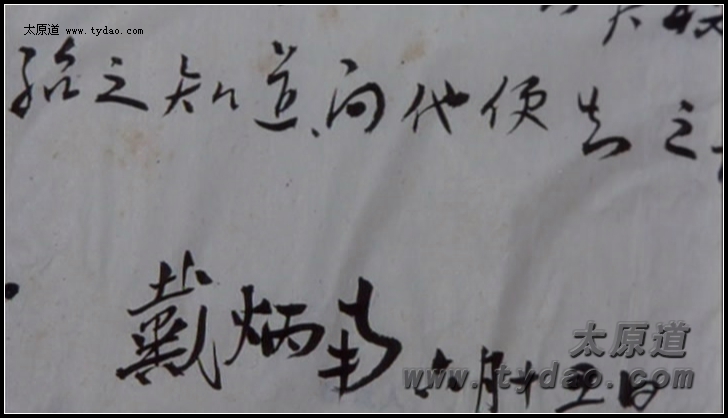 太原道 www.tydao.com
绍之知道、问他便知之
戴炳南 六月十五日
太原道
www.tydao.com